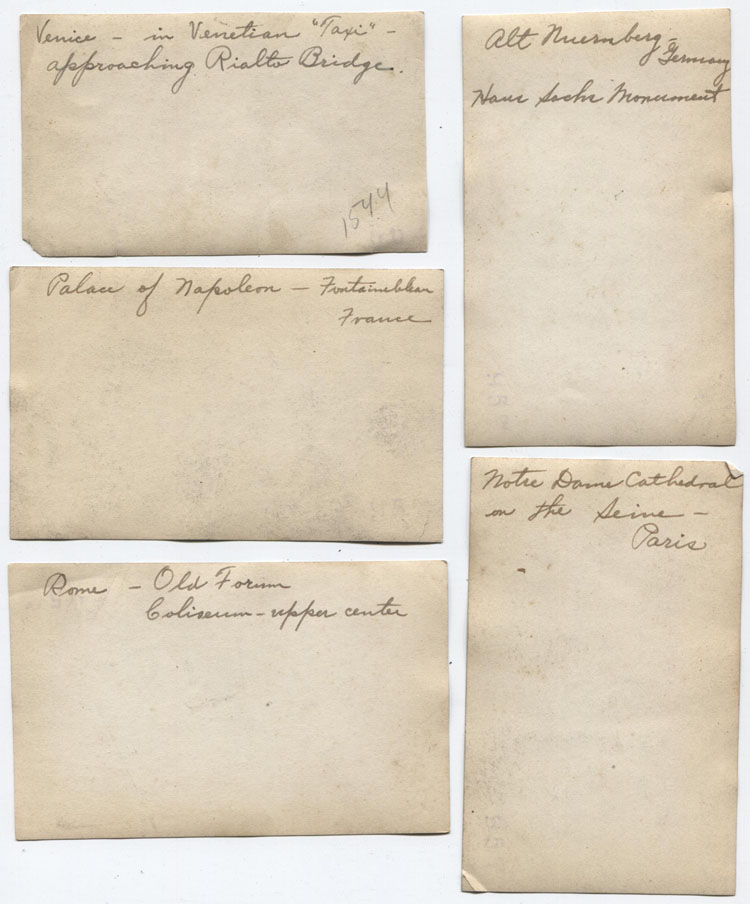 Venice - in Venetian "Taxi" -
approaching Rialto Bridge.
1544
Palace of Napoleon - Fontainebleau
France
Rome - Old Forum
Coliseum - upper center
Alt Nuernberg -
Germany
Hans Sachs Monument
Notre Dame Cathedral
on the Seine -
Paris